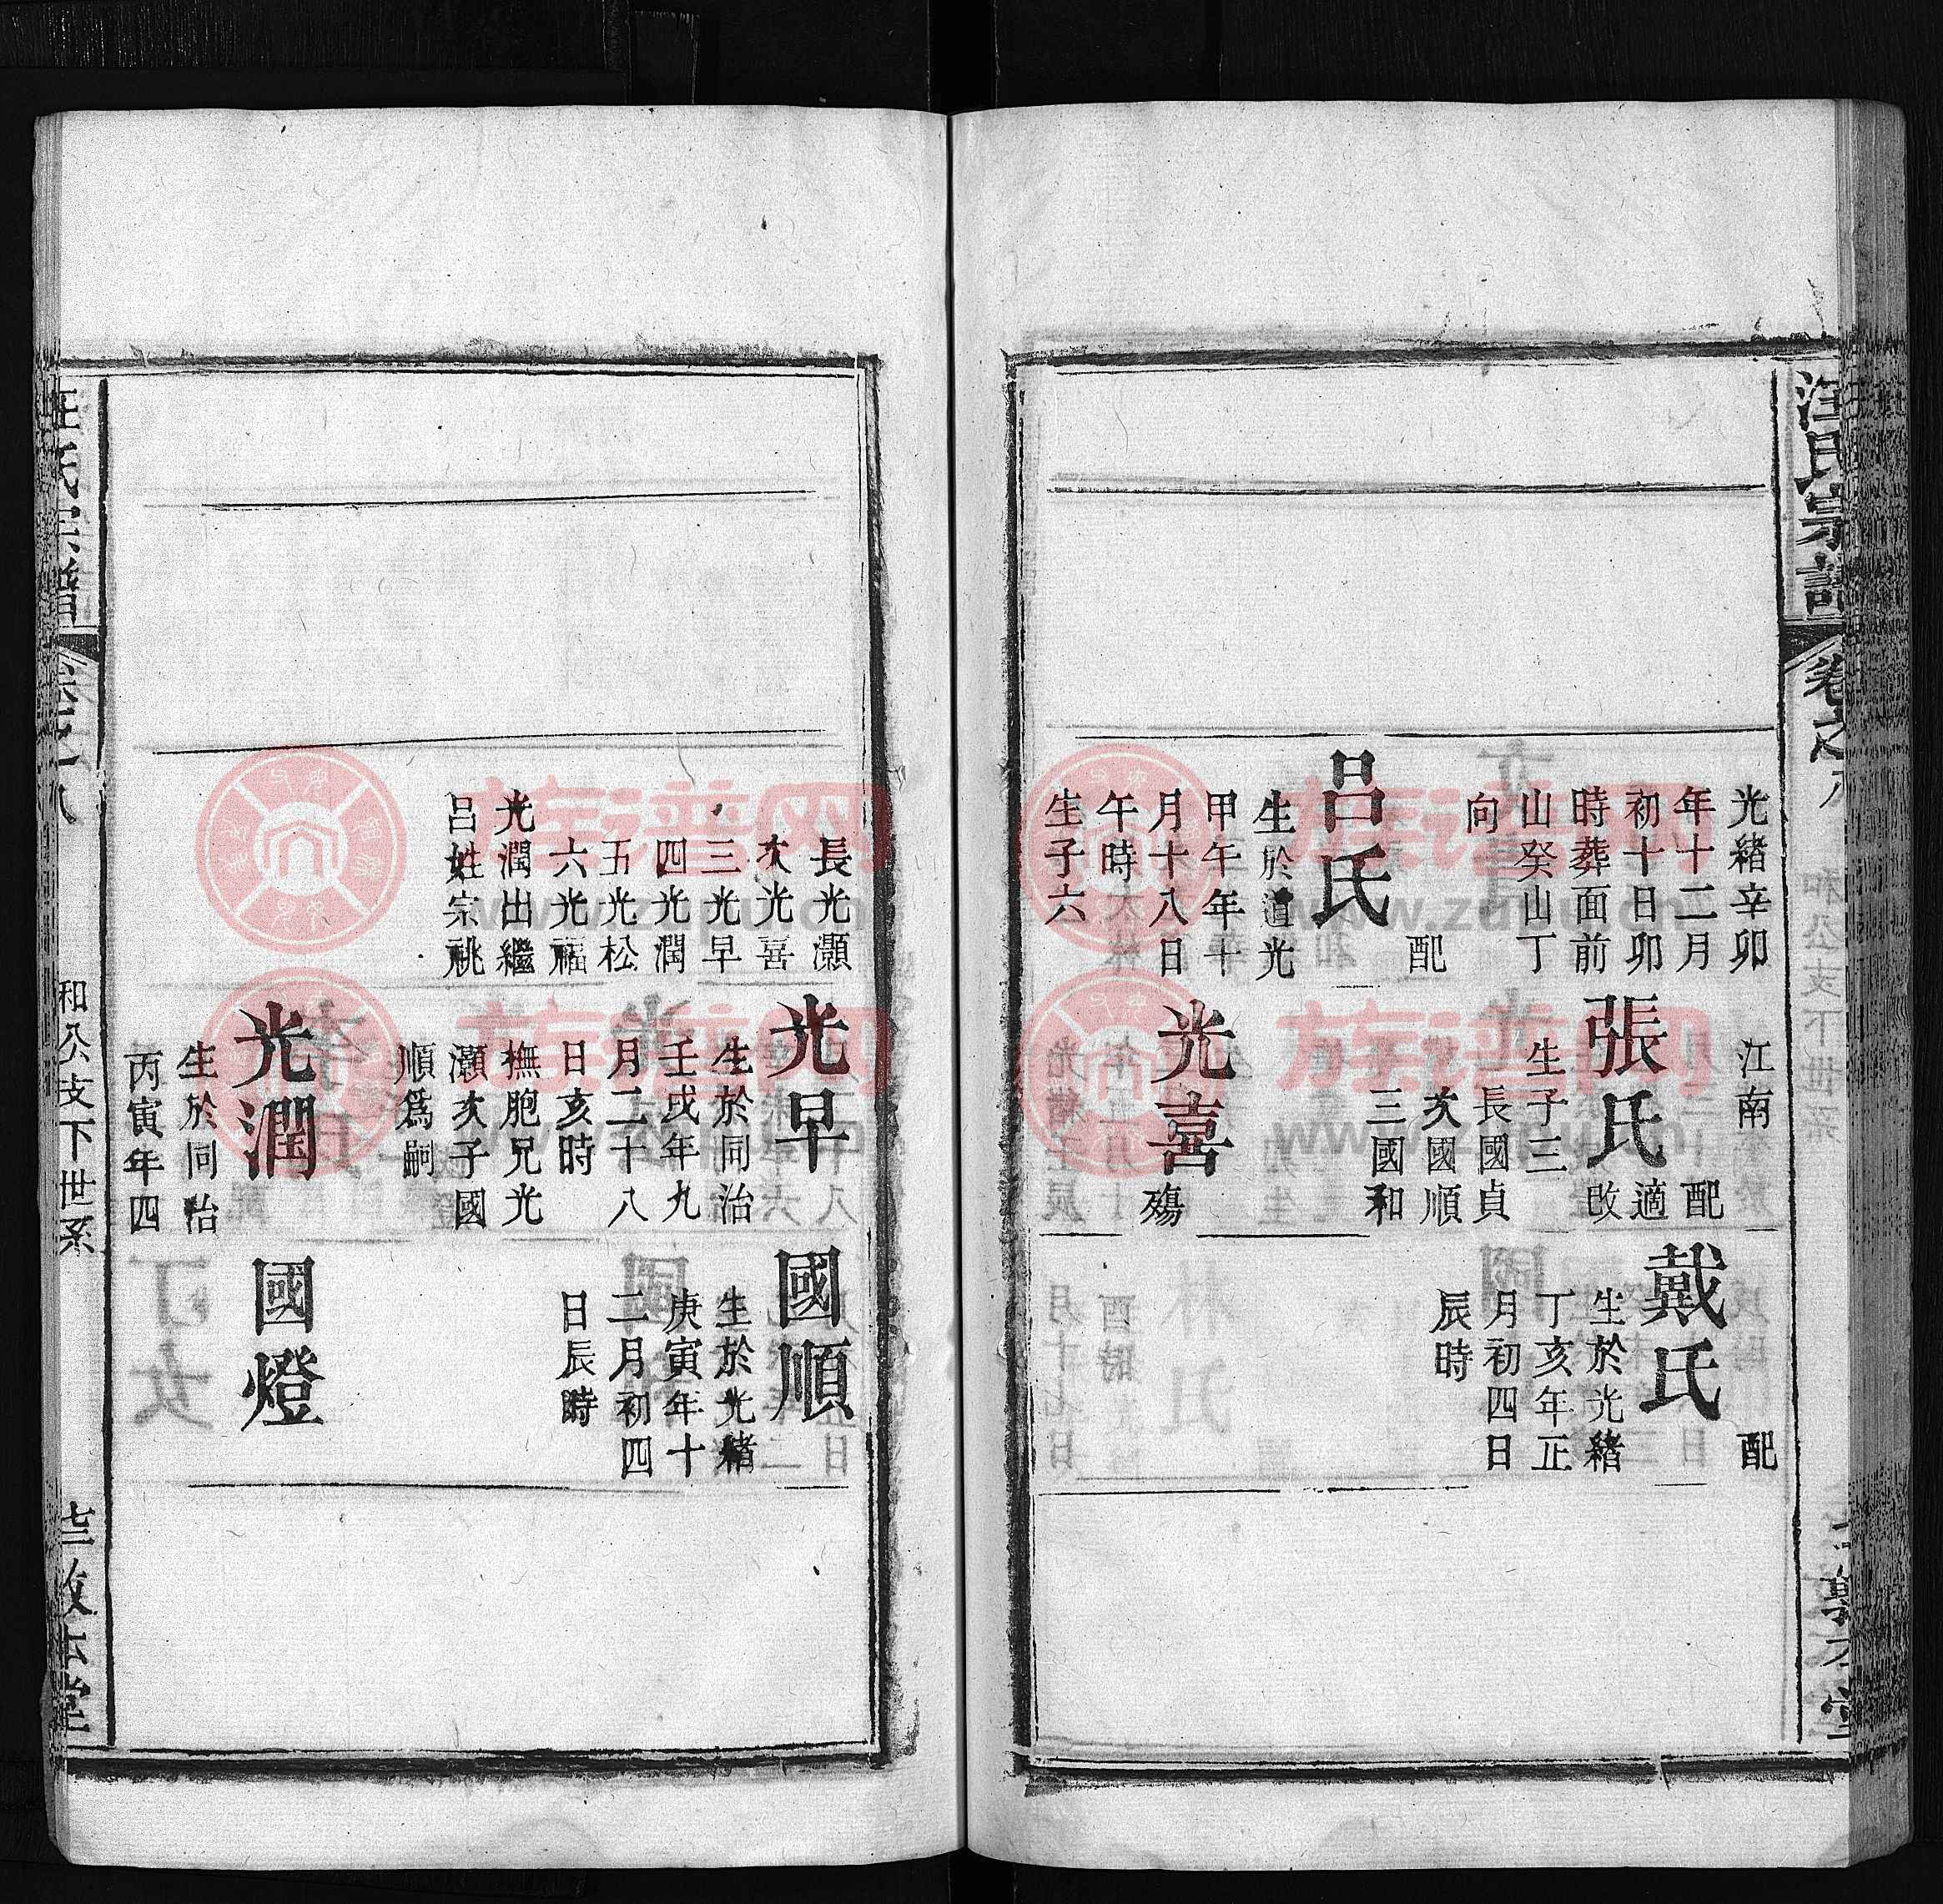 汪氏宗譜
卷之八
光緒辛卯
年十二月
初十日卯
時葬面前
山癸山丁
向
配
呂氏
生於道光
甲午年十
月十八日
午時
生子六
江南
配
適
改
張氏
生子三
長國貞
次國順
三國和
光喜
殤
配
戴氏
生於光緒
丁亥年正
月初四日
辰時
長光灝
次光喜
三光早
四光潤
五光松
六光福
光潤出繼
呂姓宗祧
光早
生於同治
壬戌年九
月二十八
日亥時
撫胞兄光
灝次子國
順爲嗣
光潤
生於同治
丙寅年四
國順
生於光緒
庚寅年十
二月初四
日辰時
國燈
汪氏宗譜
卷之八
和公支下世系
族譜网
www.zupu.cn
族譜网
www.zupu.cn
族譜网
www.zupu.cn
族譜网
www.zupu.cn